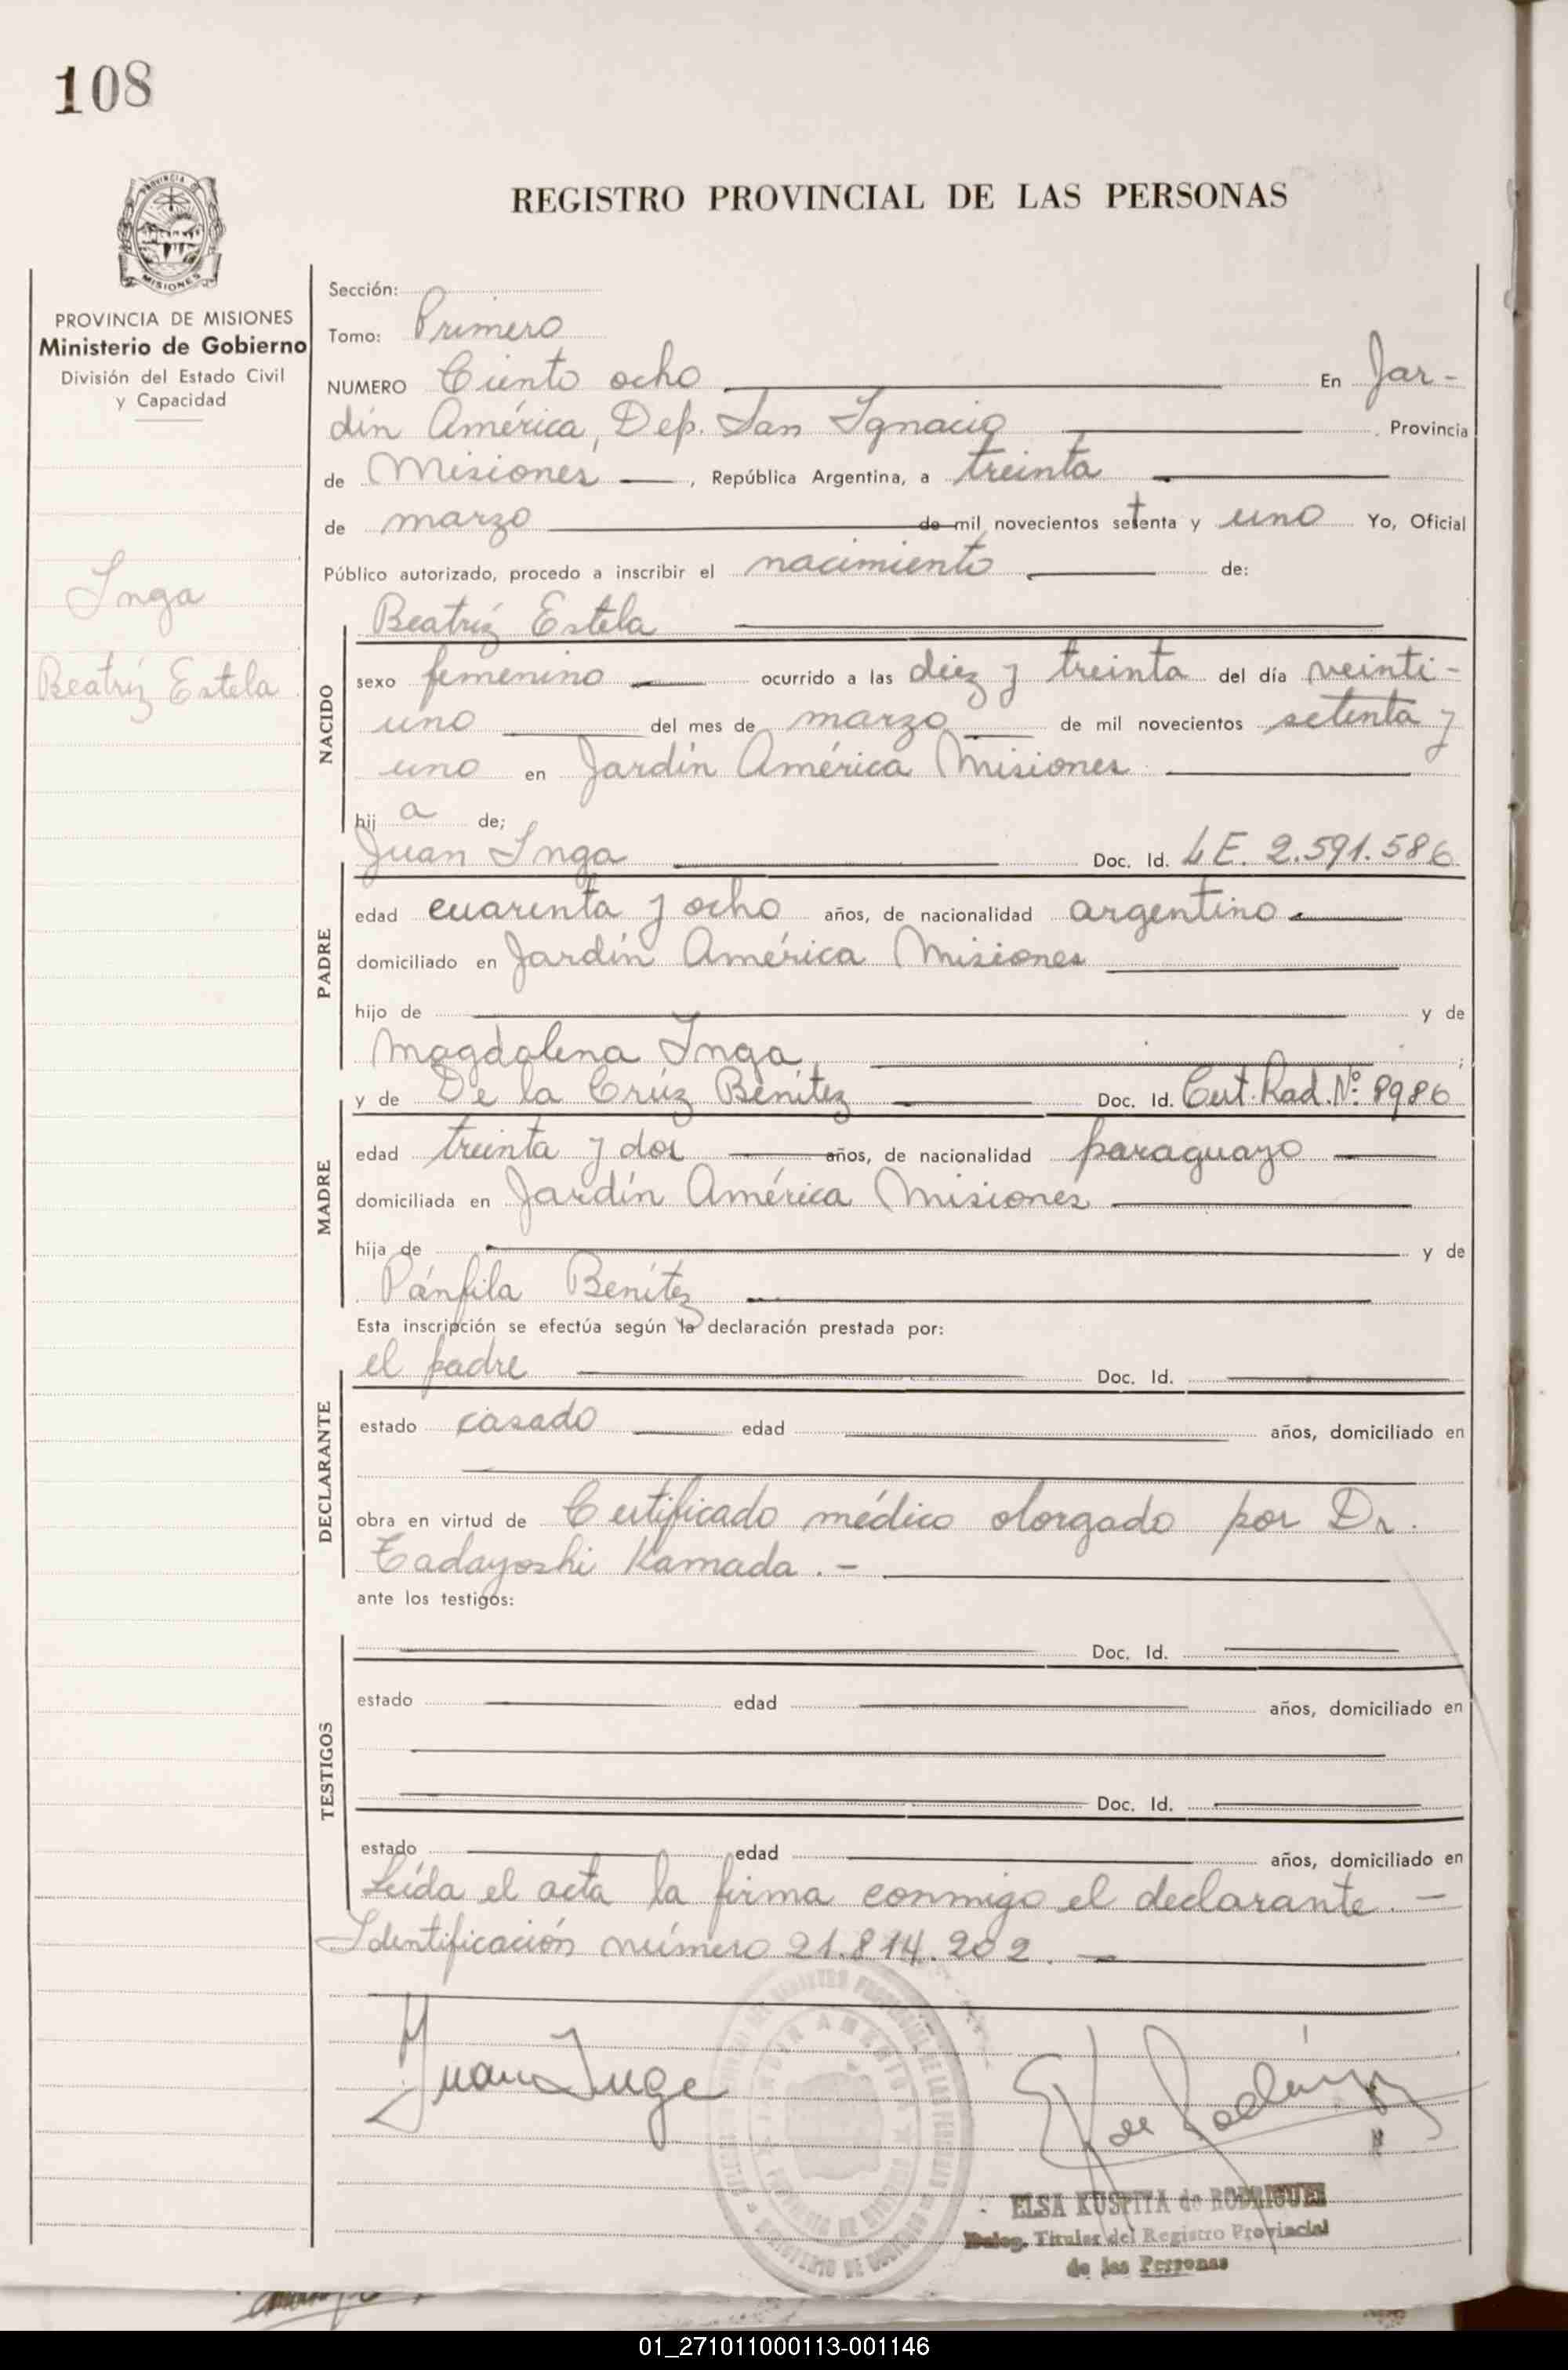 108
PROVINCIA DE
MISIONES
PROVINCIA DE MISIONES
Ministerio de Gobierno
División del Estado Civil
y Capacidad
Inga
Beatríz Estela
REGISTRO PROVINCIAL DE LAS PERSONAS
Sección:
Tomo: Primero
NUMERO Ciento ocho En Jar-
dín América, Dep. San Ignacio Provincia
de Misiones, República Argentina, a treinta
de marzo de mil novecientos setenta y uno Yo, Oficial
Público autorizado, procedo a inscribir el nacimiento de:
Beatríz Estela
NACIDO
sexo femenino ocurrido a las diez y treinta del día veinti-
uno del mes de marzo de mil novecientos setenta y
uno en Jardín América Misiones
hij a de;
Juan Inga Doc. Id. L.E. 2.591.586
PADRE
edad cuarenta y ocho años, de nacionalidad argentino
domiciliado en Jardín América Misiones
hijo de y de
Magdalena Inga ;
y de De la Crúz Benítez Doc. Id. Cert. Rad. Nº 8986
MADRE
edad treinta y dos años, de nacionalidad paraguayo
domiciliada en Jardín América Misiones
hija de y de
Pánfila Benítez
Esta inscripción se efectúa según la declaración prestada por:
el padre Doc. Id.
DECLARANTE
estado casado edad años, domiciliado en
obra en virtud de Certificado médico otorgado por Dr.
Tadayoshi Kamada.-
ante los testigos:
Doc. Id.
TESTIGOS
estado edad años, domiciliado en
Doc. Id.
estado edad años, domiciliado en
Leída el acta la firma conmigo el declarante.-
Identificación número 21.814.202.-
Juan Inga
E K de Rodríguez
ELSA KUSPITA de RODRIGUEZ
Deleg. Titular del Registro Provincial
de las Personas
01_271011000113-001146